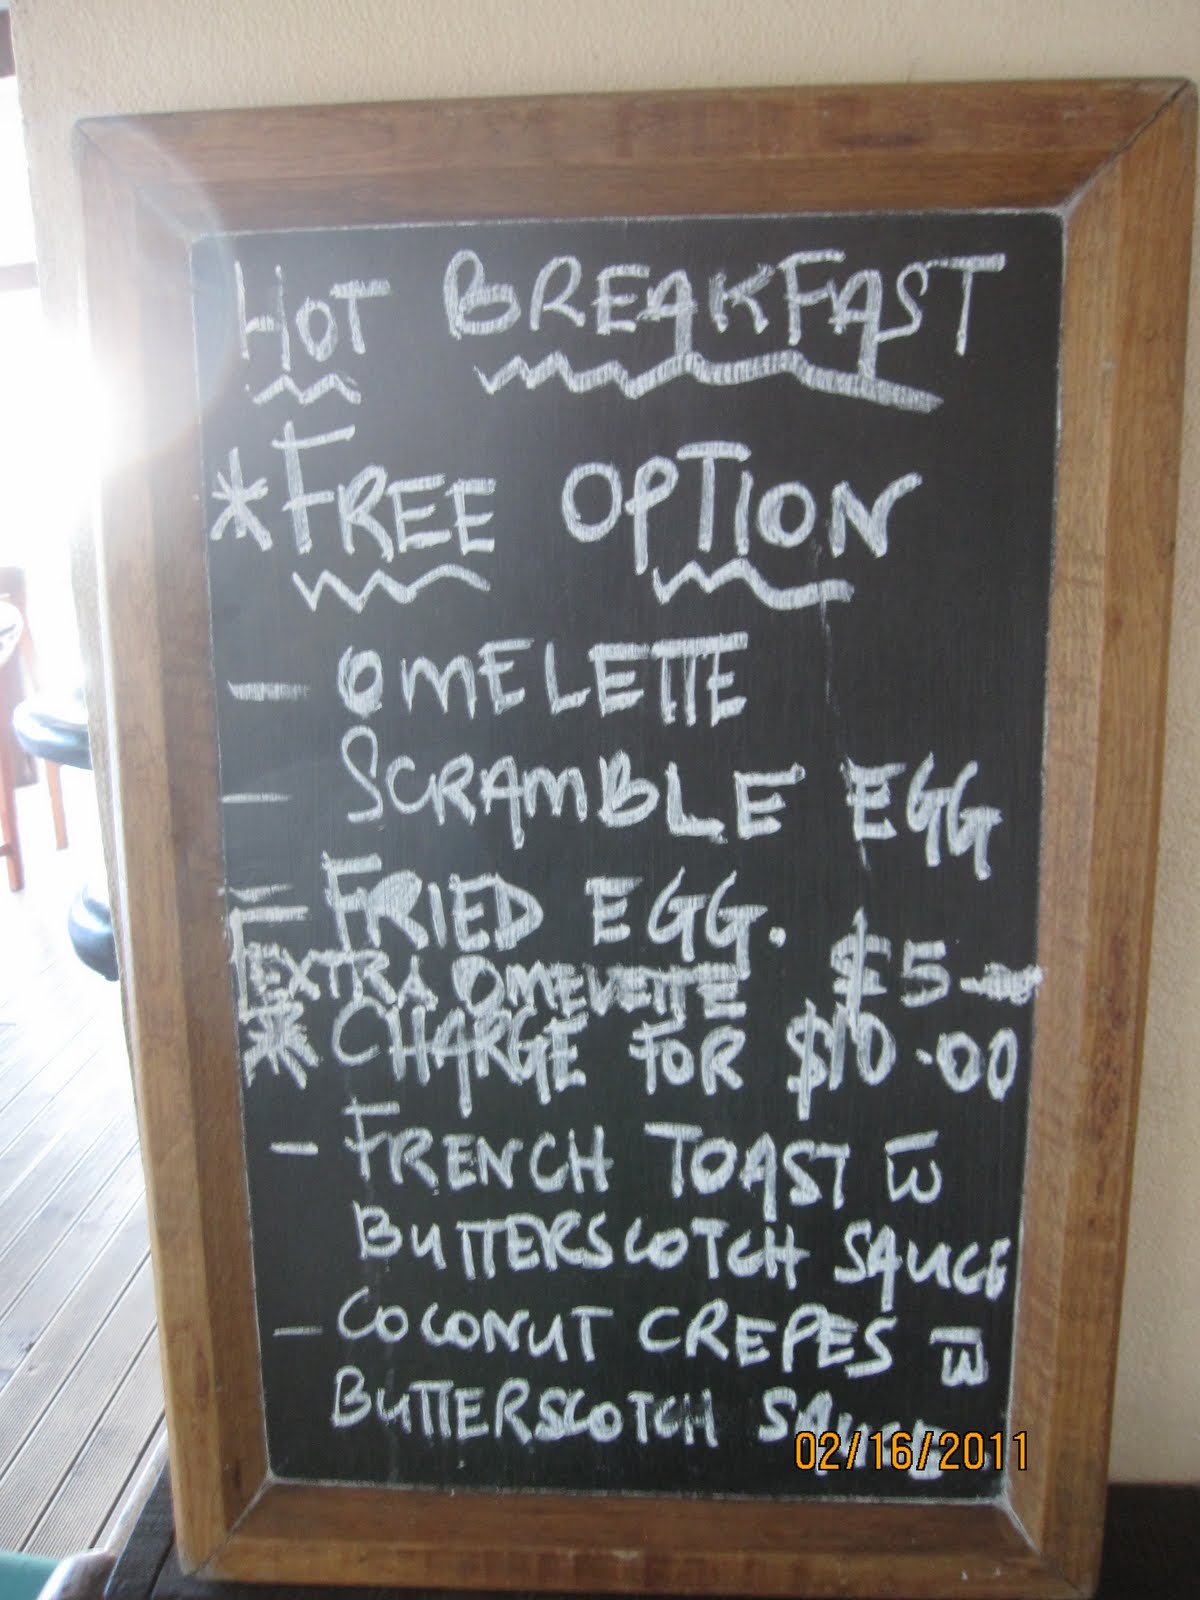 HOT BREAKFAST
* FREE OPTION
- OMELETTE
- SCRAMBLE EGG
- FRIED EGG.
EXTRA OMELETTE $5-
* CHARGE FOR $10.00
- FRENCH TOAST w̅
BUTTERSCOTCH SAUCE
- COCONUT CREPES w̅
BUTTERSCOTCH SAUCE
02/16/2011